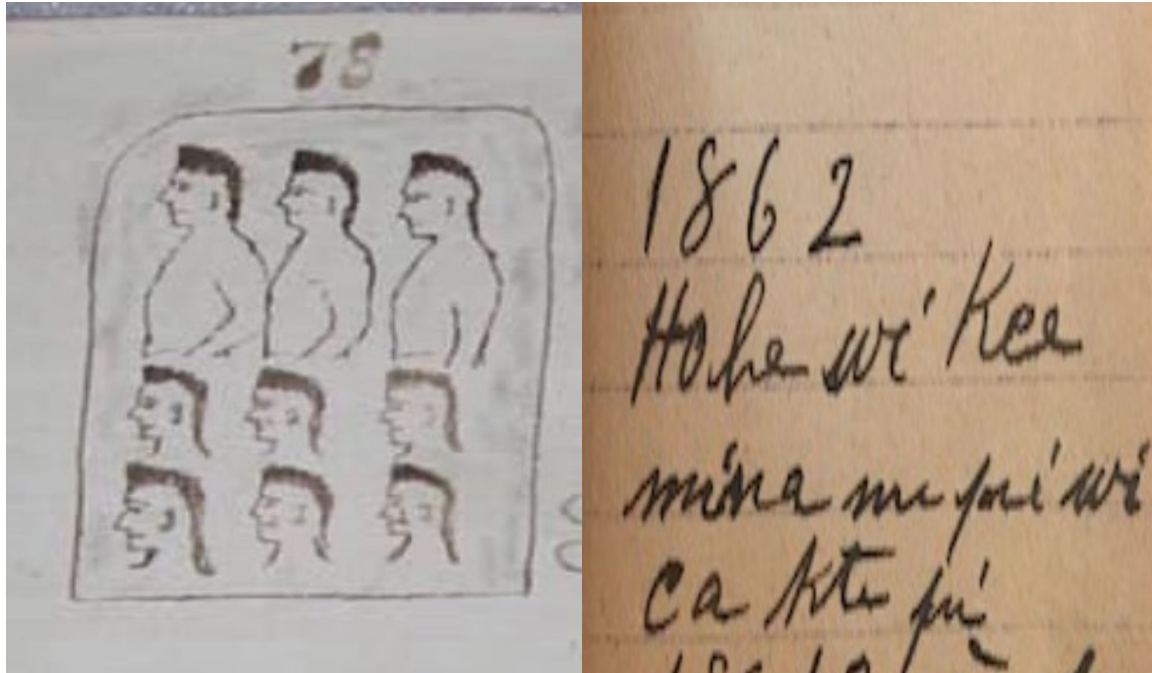 78
1862
Hohe wi Kce
mna nu pi wi
ca kte pi